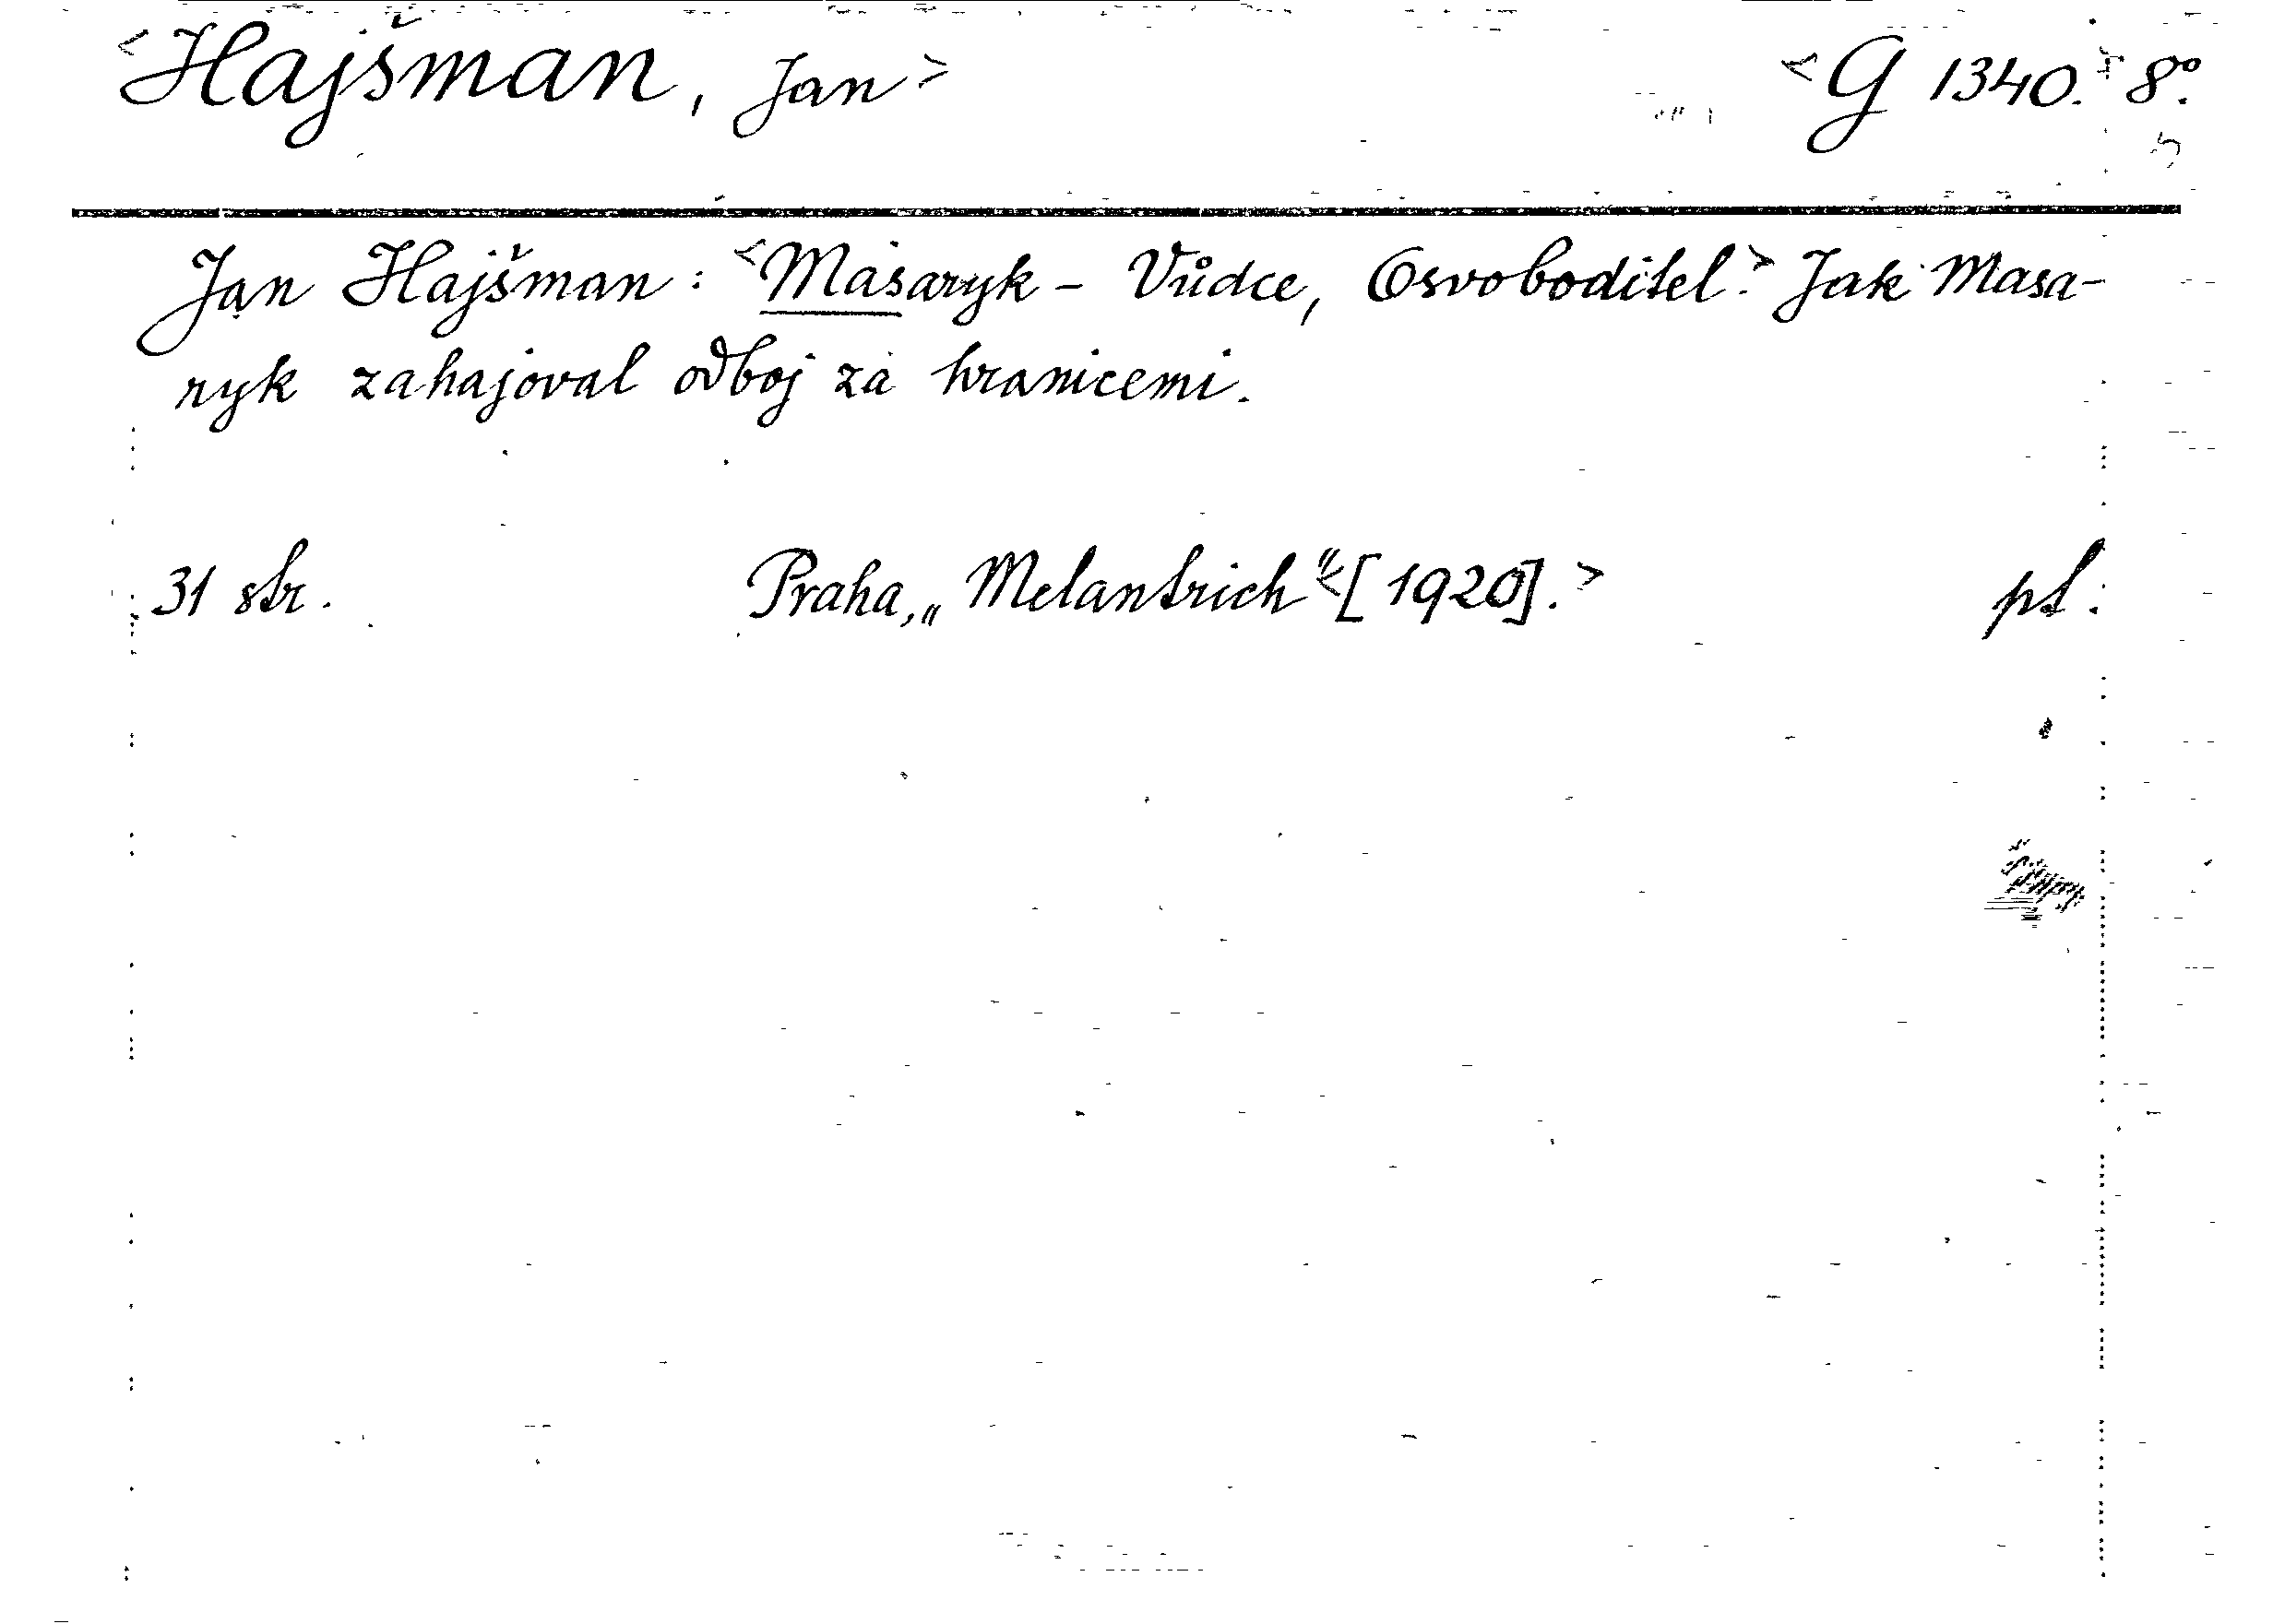 <Hajšman, Jan> <G 1340.> 8°.
Jan Hajšman: <Masaryk - Vůdce, Osvoboditel.> Jak Masa-
ryk zahajoval odboj za hranicemi.
31 str. Praha, „Melantrich“ <[1920].> pl.